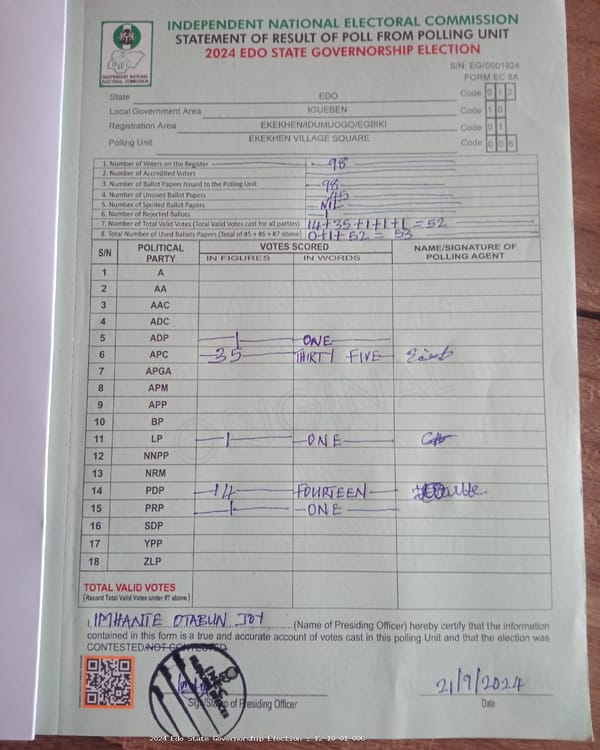 INDEPENDENT NATIONAL ELECTORAL COMMISSION
STATEMENT OF RESULT OF POLL FROM POLLING UNIT
2024 EDO STATE GOVERNORSHIP ELECTION
INEC
INDEPENDENT NATIONAL ELECTORAL COMMISSION
S/N: EG/0001924
FORM EC 8A
State EDO Code 0 1 2
Local Government Area IGUEBEN Code 1 0
Registration Area EKEKHEN/IDUMUOGO/EGBIKI Code 0 1
Polling Unit EKEKHEN VILLAGE SQUARE Code 0 0 6
1. Number of Voters on the Register 98
2. Number of Accredited Voters
3. Number of Ballot Papers Issued to the Polling Unit 98
4. Number of Unused Ballot Papers 45
5. Number of Spoiled Ballot Papers NIL
6. Number of Rejected Ballots 1
7. Number of Total Valid Votes (Total Valid Votes cast for all parties) 14+35+1+1+1=52
8. Total Number of Used Ballots Papers (Total of #5 + #6 + #7 above) 0+1+52=53
S/N POLITICAL PARTY VOTES SCORED NAME/SIGNATURE OF POLLING AGENT
IN FIGURES IN WORDS
1 A
2 AA
3 AAC
4 ADC
5 ADP 1 ONE
6 APC 35 THIRTY FIVE
7 APGA
8 APM
9 APP
10 BP
11 LP 1 ONE
12 NNPP
13 NRM
14 PDP 14 FOURTEEN
15 PRP 1 ONE
16 SDP
17 YPP
18 ZLP
TOTAL VALID VOTES
(Record Total Valid Votes under #7 above)
I, IMHANTE OTABUN JOY (Name of Presiding Officer) hereby certify that the information
contained in this form is a true and accurate account of votes cast in this polling Unit and that the election was
CONTESTED/NOT CONTESTED
Sign/Stamp of Presiding Officer
21/9/2024
Date
2024 Edo State Governorship Election : 12-10-01-006